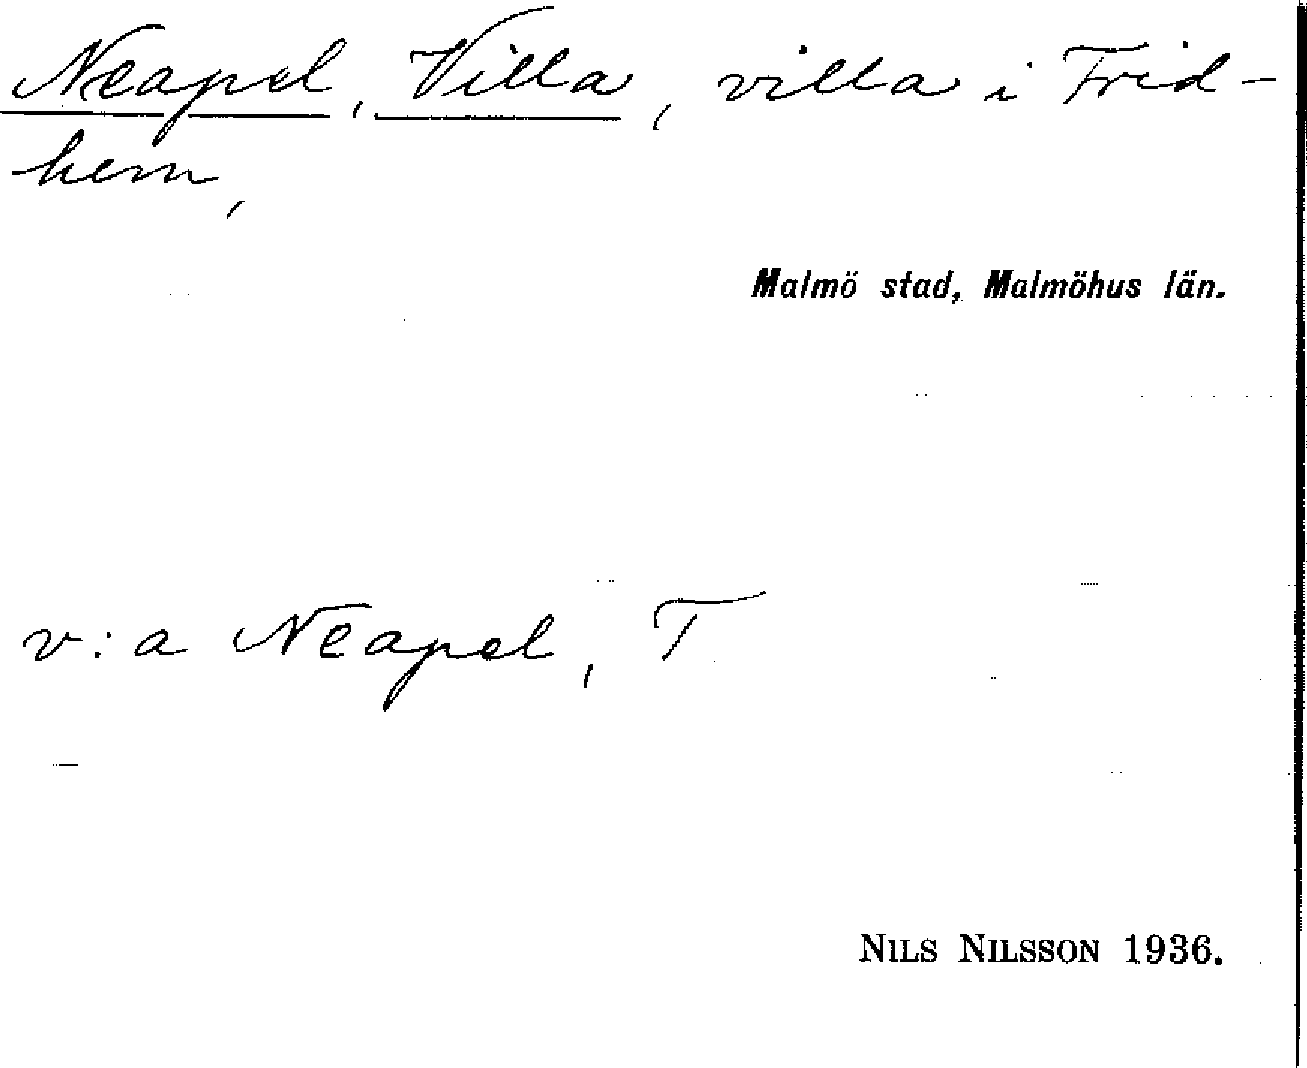 Neapel, Villa, villa i Frid-
hem,
Malmö stad, Malmöhus län.
v:a Neapel, T
NILS NILSSON 1936.